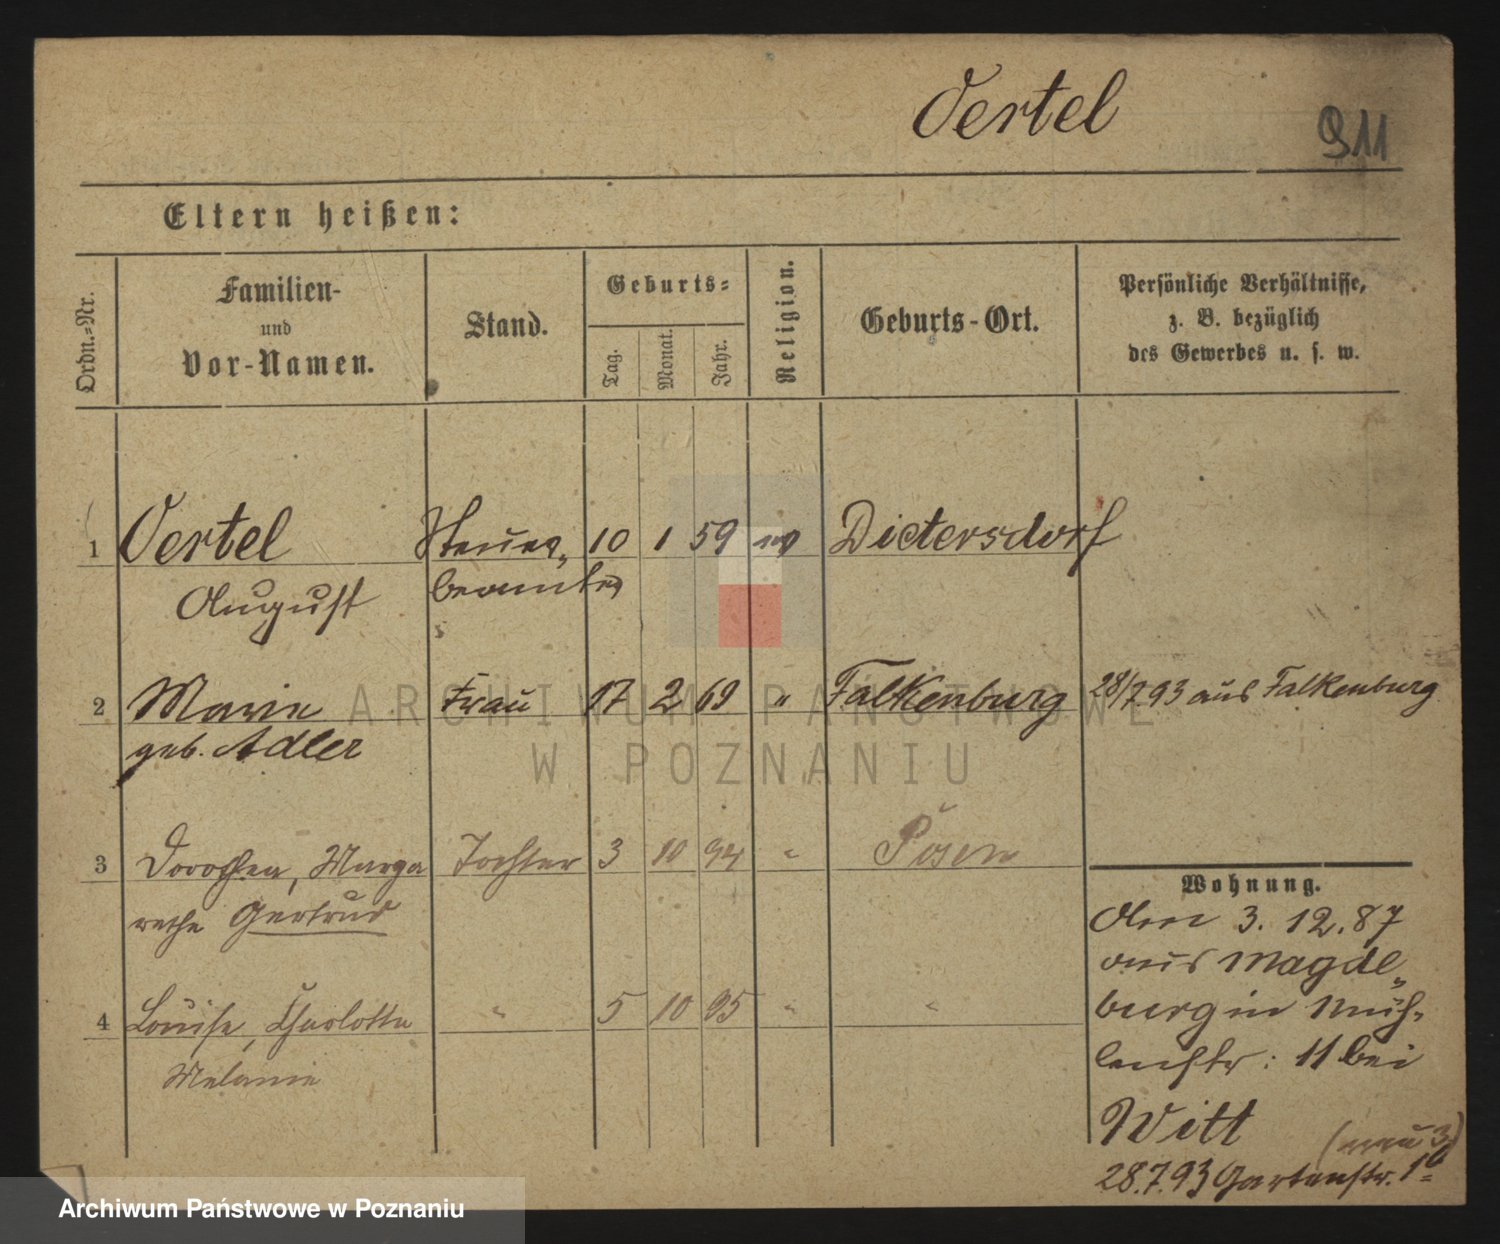 Oertel
911
Eltern heißen:
Ordn.=Nr.
Familien-
und
Vor-Namen.
Stand.
Geburts=
Tag.
Monat.
Jahr.
Religion.
Geburts-Ort.
Persönliche Verhältnisse,
z. B. bezüglich
des Gewerbes u. s. w.
1 Oertel Steuer- 10 1 59 Dietersdorf
August beamter
2 Marie Frau 17 2 69 " Falkenburg 28/7 93 aus Falkenburg
geb. Adler
3 Dorothea, Marga Tochter 3 10 94 " Posen
rethe Gertrud
4 Louise, Charlotte " 5 10 95 " "
Melanie
Wohnung.
Am 3. 12. 87
aus Magde-
burg in Müh-
lenstr: 11 bei
Witt
(neu 3)
28.7.93 Gartenstr.
ARCHIWUM PAŃSTWOWE
W POZNANIU
Archiwum Państwowe w Poznaniu